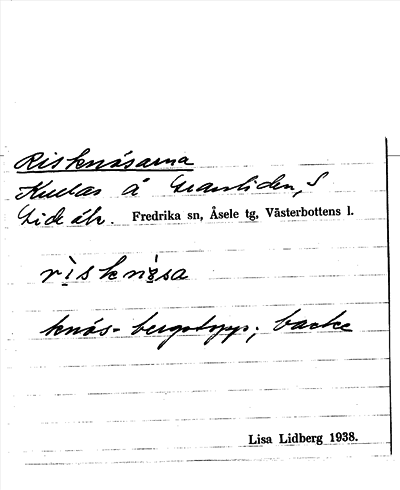 Risknösarna
Kullar å Granliden, S
Lidsök. Fredrika sn, Åsele tg, Västerbottens l.
risknösa
knös = bergstopp; backe
Lisa Lidberg 1938.